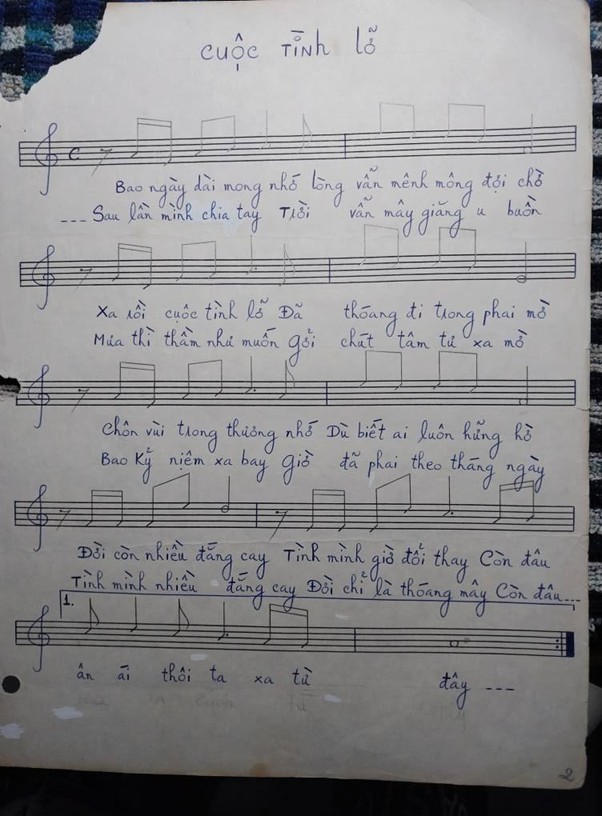 CUỘC TÌNH lỡ
C
Bao ngày dài mong nhớ lòng vẫn mênh mông đợi chờ
--- Sau lần mình chia tay Trời vẫn mây giăng u buồn
Xa rồi cuộc tình lỡ Đã thoáng đi trong phai mờ
Mưa thì thầm như muốn gởi chút tâm tư xa mờ
Chôn vùi trong thương nhớ Dù biết ai luôn hững hờ
Bao Kỷ niệm xa bay Giờ đã phai theo tháng ngày
Đời còn nhiều đắng cay Tình mình giờ đổi thay Còn đâu
Tình mình nhiều đắng cay Đời chỉ là thoáng mây Còn đâu ---
1.
ân ái thôi ta xa từ đây ---
2